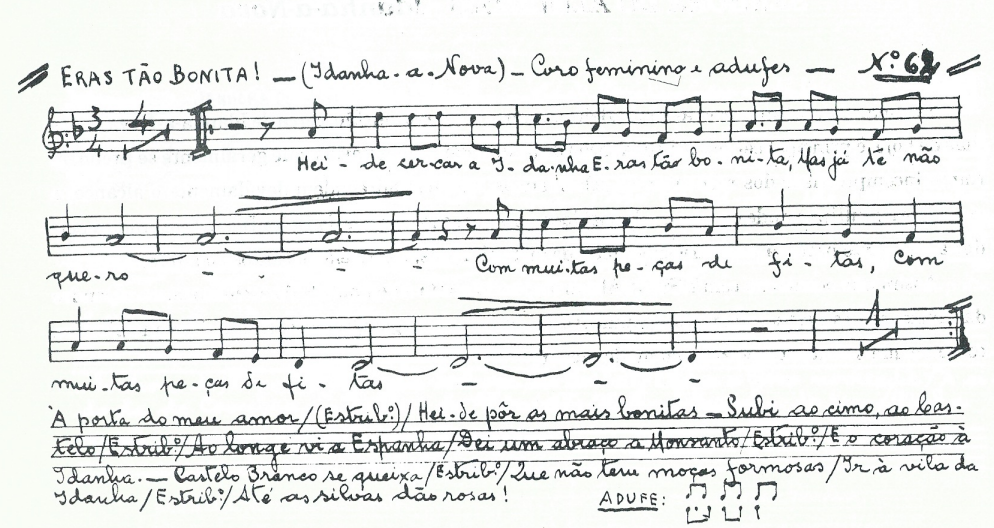 ERAS TÃO BONITA! — (Idanha-a-Nova) — Coro feminino e adufes — Nº 62
3 4 4
Hei-de cer-car a I-da-nha E-ras tão bo-ni-ta, Mas já te não
que-ro - - - - Com mui-tas pe-ças de fi-tas, Com
1
mui-tas pe-ças de fi-tas - - -
À porta do meu amor/(Estribº)/Hei-de pôr as mais bonitas — Subi ao cimo, ao Cas-
telo/Estribº/Ao longe vi a Espanha/Dei um abraço a Monsanto/Estribº/E o coração à
Idanha. — Castelo Branco se queixa/Estribº/Que não tem moças formosas/Ir à vila da
Idanha/Estribº/Até as silvas dão rosas!
ADUFE: